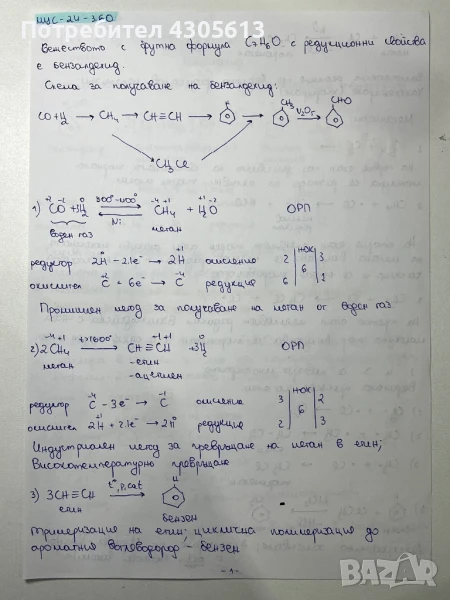 ИИС-24-360
Потребител 4305613
Веществото с брутна формула C7H6O с редукционни свойства
е бензалдехид.
Схема за получаване на бензалдехид:
CO+H2 → CH4 → CH≡CH → → CH3 V2O5 → CHO
CH3Cl
1) +2 -2 0 300°-400° -4 +1 +1 -2
CO + 3H2 ⇌ CH4 + H2O ОРП
Ni
воден газ метан
редуктор 2H⁰ - 2.1e⁻ → 2H⁺¹ окисление 2 | НОК | 3
окислител C⁺² + 6e⁻ → C⁻⁴ редукция 6 | 6 | 1
Промишлен метод за получаване на метан от воден газ
2) 2CH4 t>1500° → CH≡CH + 3H2 ОРП
метан - етин
- ацетилен
редуктор C⁻⁴ - 3e⁻ → C⁻¹ окисление 3 | НОК | 2
окислител 2H⁺¹ + 2.1e⁻ → 2H⁰ редукция 2 | 6 | 3
Индустриален метод за превръщане на метан в етин;
Високотемпературно превръщане
3) 3CH≡CH t°, p, cat →
етин бензен
Тримеризация на етин; циклична полимеризация до
ароматния въглеводород - бензен
- 1 -
BAZAR.bg